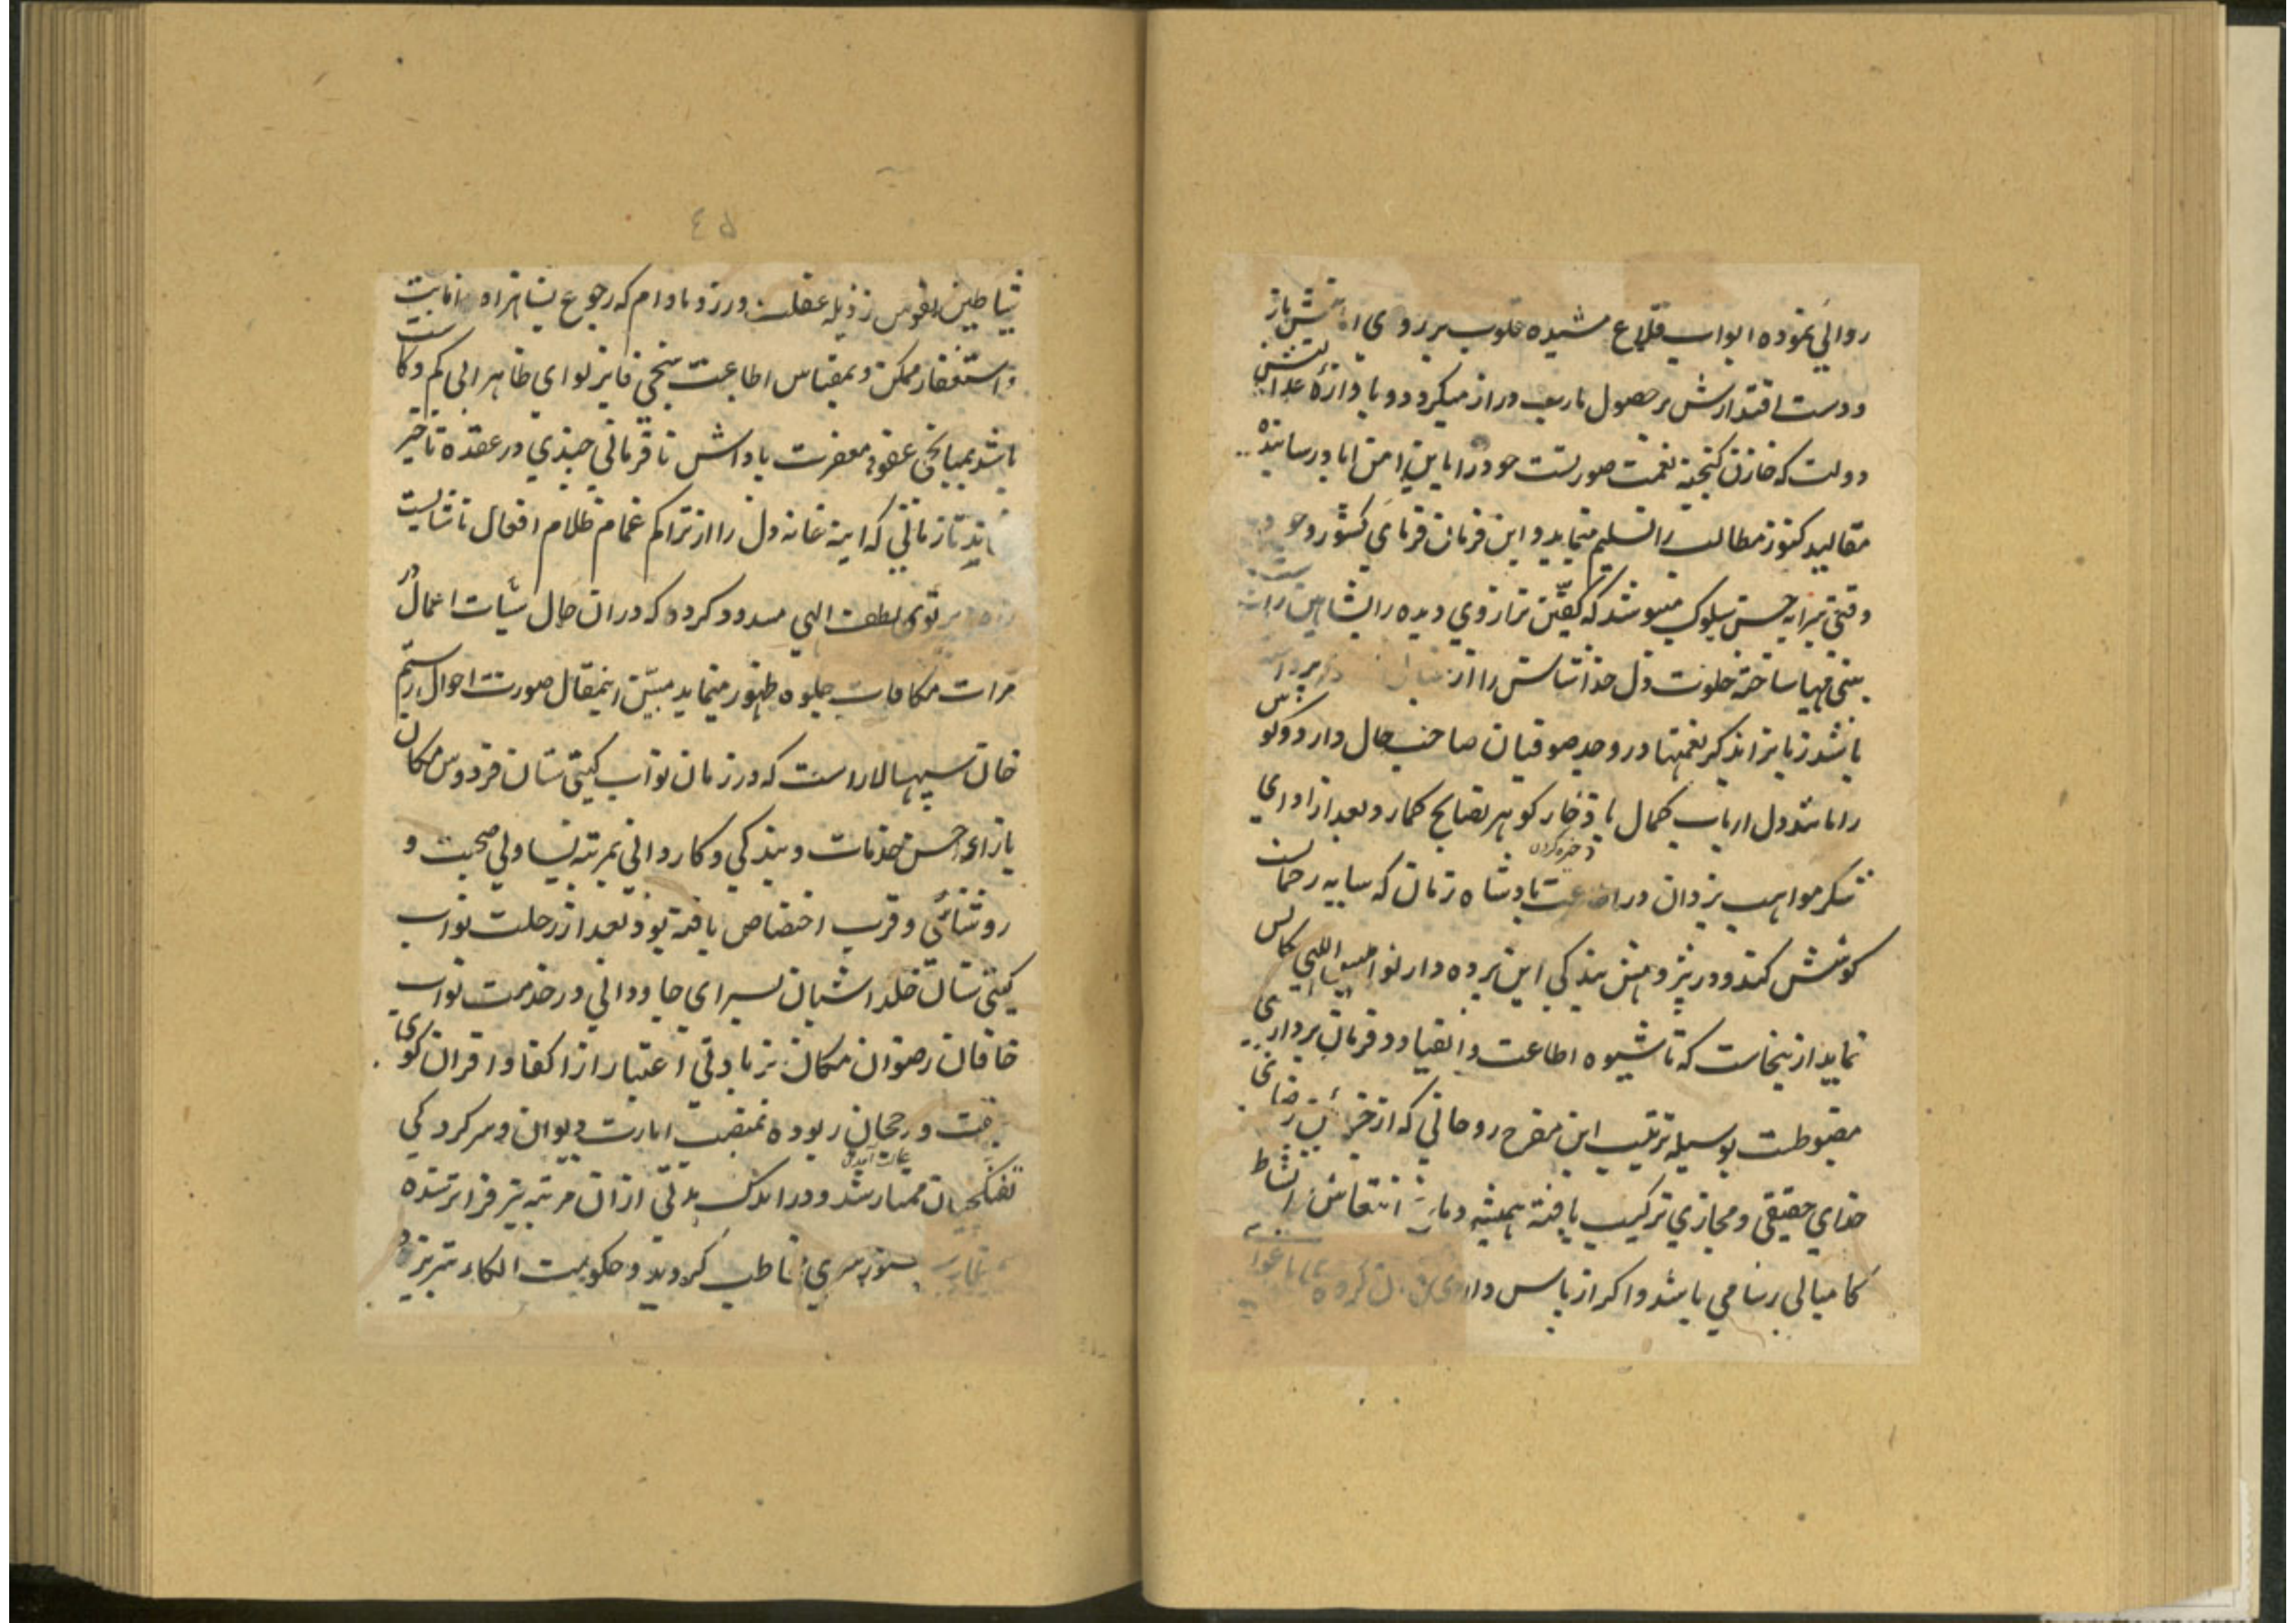 روائي نموده ابواب قلاع مشیده قلوب بر روی باز
ودست اقتدارش بر حصول مارب دراز میکردد و باوازهٔ
دولت که خازن کنجینه نعمت صوریست خود را باین امن اباد رسانیده
مقالید کنوز مطالب را تسلیم مینماید و این فرمان فرمای کشور وجود
وقتی پیرایه حسن سلوک میپوشد که کفتین ترازوی دیده را بشاهین
بینی مهیا ساخته خلوت دل خداشناسش را از
باشد زبانرا بذکر نعمتها در وجد صوفیان صاحب حال دارد و کوش
را مانند دل ارباب کمال با ذخار کوهر نصایح کمارد و بعد از ادای
شکر مواهب یزدان در اطاعت پادشاه زمان که سایه رحمان است
ذخیره کردن
کوشش کند و در پژوهش بندکی این پرده دار نوامیس الهی
نماید از ینجاست که تا شیوه اطاعت و انقیاد و فرمان برداری
مضبوطست بوسیله ترتیب این مفرح روحانی که از خزائن
خدای حقیقی و مجازی ترکیب یافته همیشه انتعاش نشاط
کامیابی رسا می باشد و اکر از پاس
٤۵
شیاطین نفوس رذیله غفلت ورزد مادام که رجوع بشاهراه انابت
و استغفار ممکن و بمقیاس اطاعت فایز لوای ظاهر الی کم و کاست
باشد بمیانجی عفو و مغفرت پاداش نافرمانی چندی در عقده تاخیر
ماند تا زمانی که اینه خانه دل را از تراکم غمام ظلام افعال ناشایست
پرتوی لطف الهی مسدود کردد که در ان حال سیّات اعمال در
مرات مکافات جلوه ظهور مینماید مبیّن اینمقال صورت احوال رستم
خان سپهسالار است که در زمان نواب کیتی ستان فردوس مکان
بازای حسن خدمات و بندکی و کاردانی بمرتبه یساولی صحبت و
روشناسی و قرب اختصاص یافته بود و بعد از رحلت نواب
کیتی ستان خلد اشیان بسرای جاودانی در خدمت نواب
خاقان رضوان مکان بزیادتی اعتبار از اکفا و اقران کوی
و رجحان ربوده بمنصب امارت دیوان و سرکردکی
تفنکچیان ممتاز شد و در اندک مدتی از ان مرتبه نیز فراتر شده
کردید و حکومت الکاء تبریز